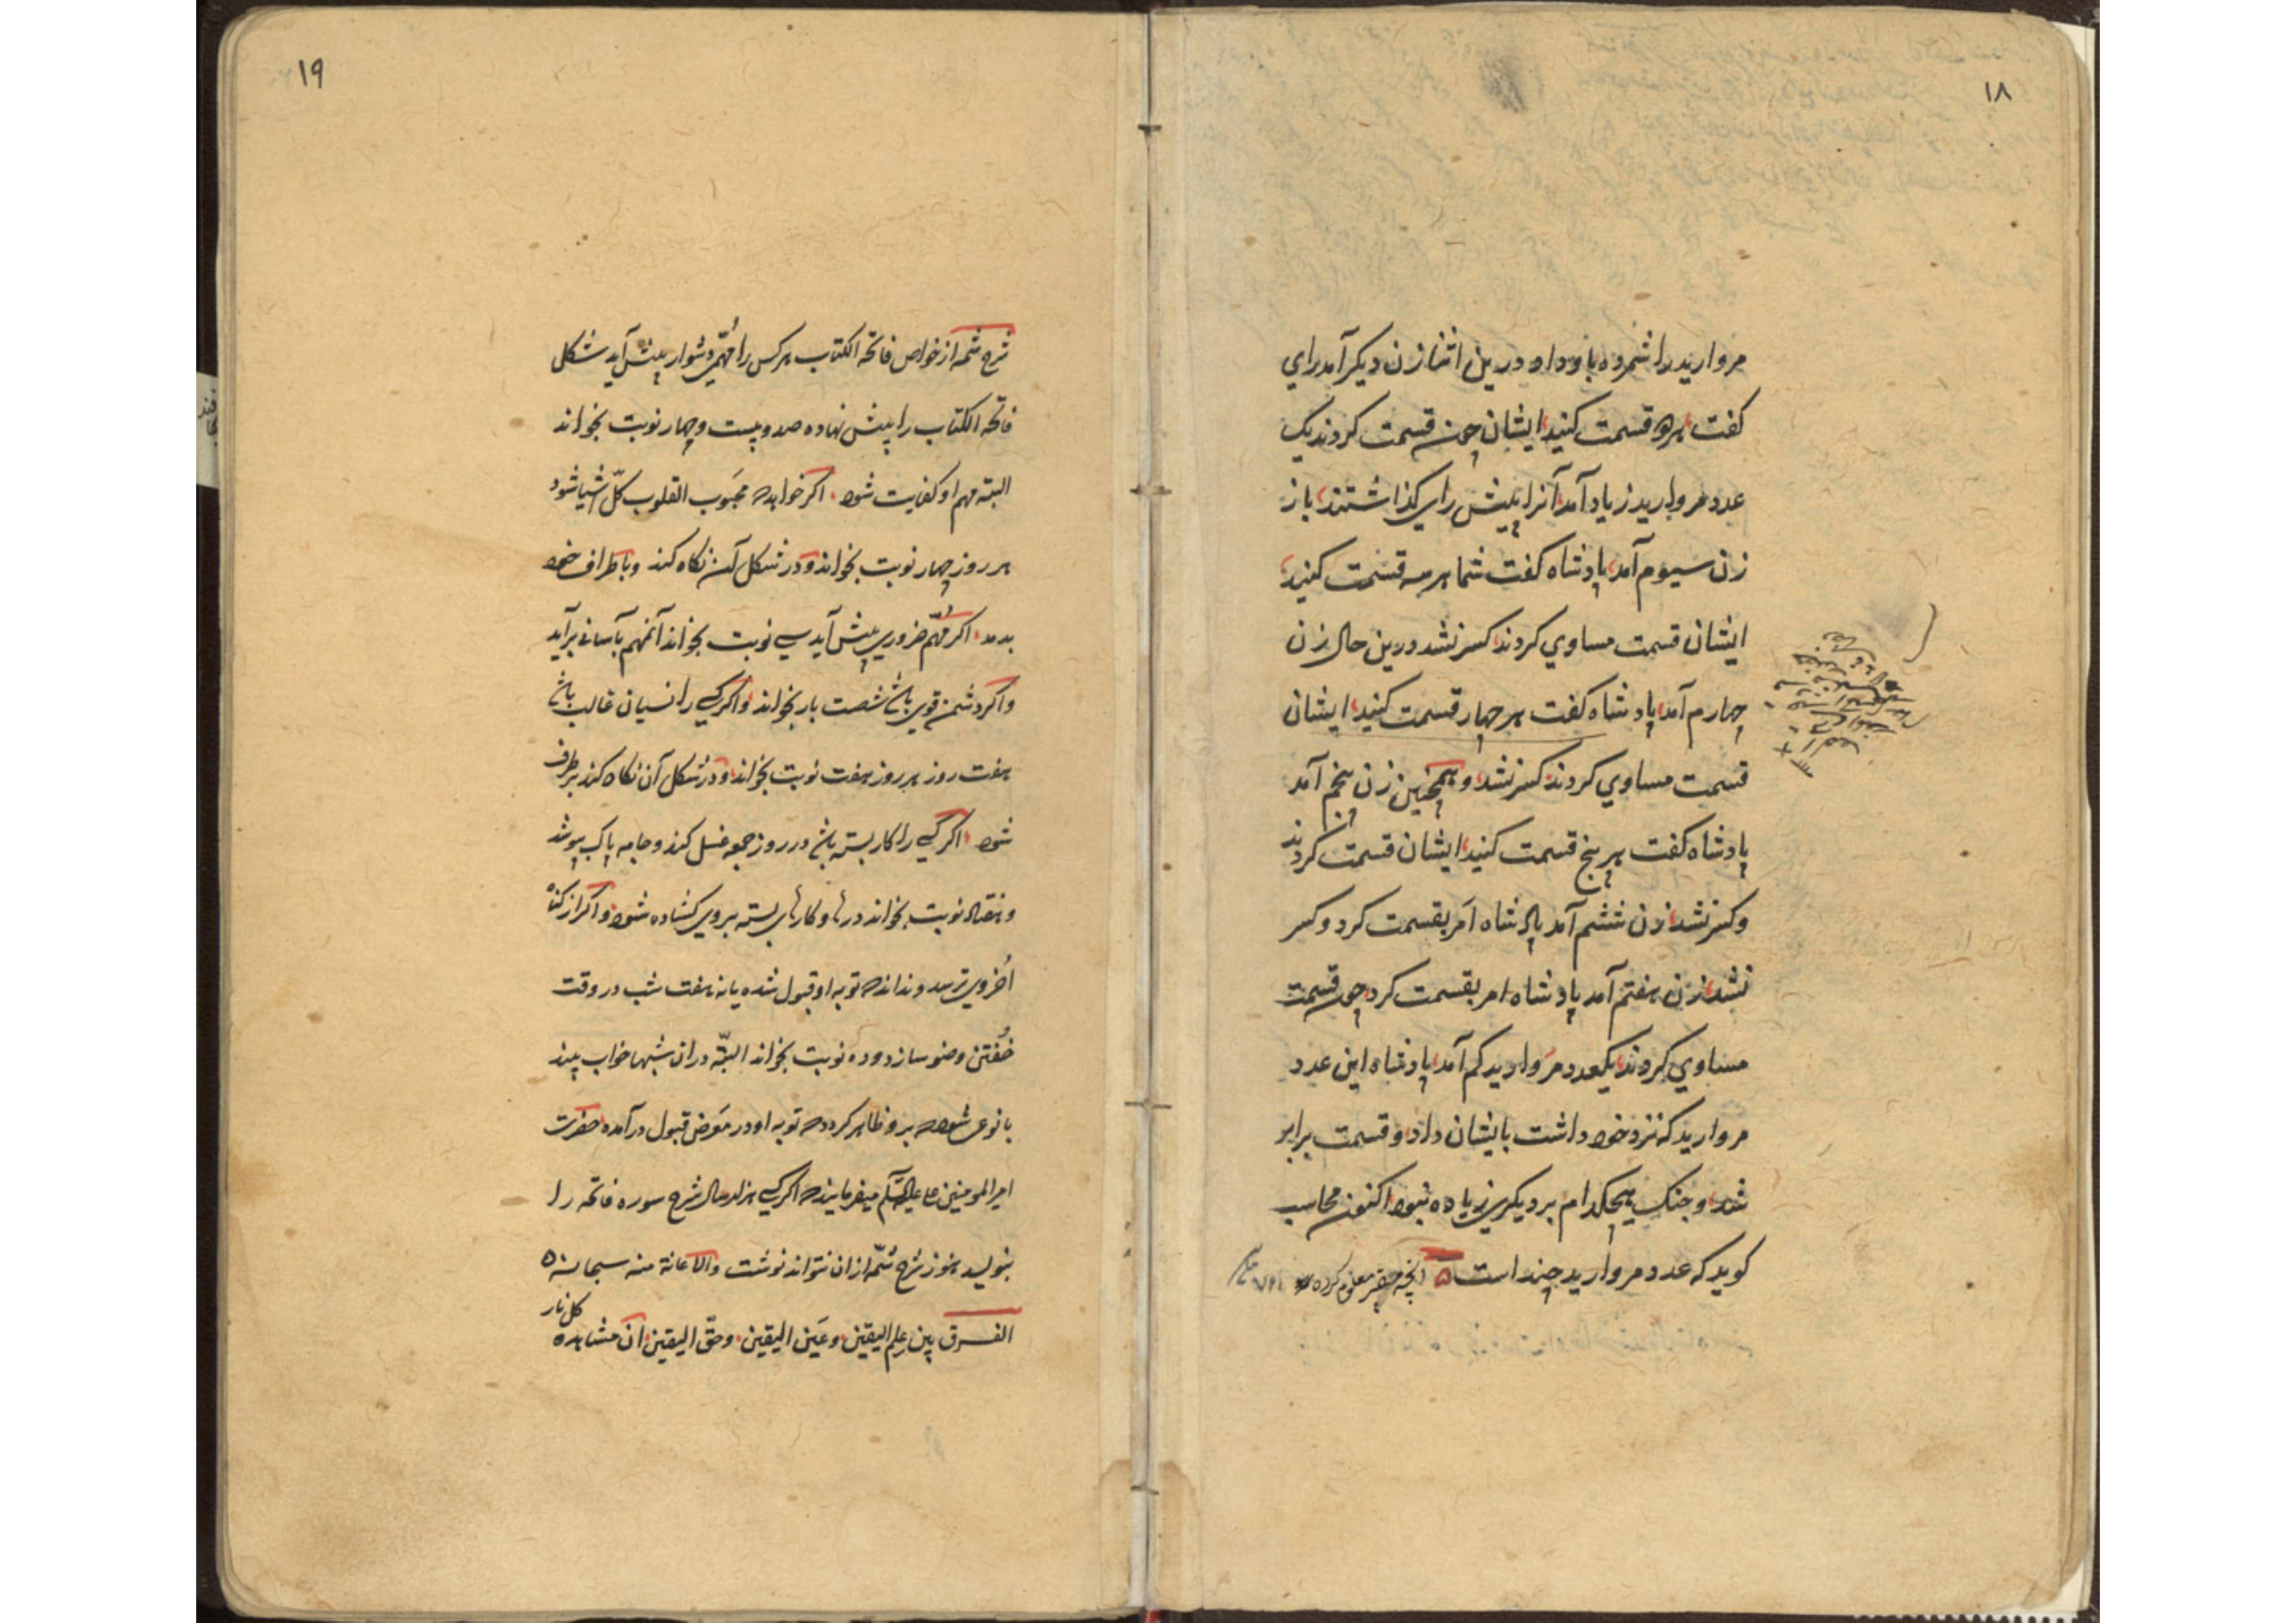 ۱۸
مروارید را شمرده باو داد درین اثنا زن دیگر آمد رای
گفت هر دو قسمت کنید ایشان چون قسمت کردند یک
عدد مروارید زیاد آمد آنرا پیش رای گذاشتند باز
زن سیوم آمد پادشاه گفت شما هر سه قسمت کنید
ایشان قسمت مساوي کردند کسر نشد درین حال زن
چهارم آمد پادشاه گفت هر چهار قسمت کنید ایشان
قسمت مساوي کردند کسر نشد و همچنین زن پنجم آمد
پادشاه گفت هر پنج قسمت کنید ایشان قسمت کردند
و کسر نشد زن ششم آمد پادشاه امر بقسمت کرد و کسر
نشد زن هفتم آمد پادشاه امر بقسمت کرد چون قسمت
مساوي کردند یکعدد مروارید کم آمد پادشاه این عدد
مروارید که نزد خود داشت بایشان داد و قسمت برابر
شد و جنک هیچکدام بر دیکري زیاده نبود اکنون محاسب
کوید که عدد مروارید چند است انچه حقیر معلوم کرده
۱۹
شرح شمه از خواص فاتحة الکتاب هر کس را مهمّي دشوار پیش آید شکل
فاتحه الکتاب را پیش نهاده صد و بیست و چهار نوبت بخواند
البته مهم او کفایت شود اکر خواهد که محبوب القلوب کلّ اشیا شود
هر روز چهار نوبت بخواند و در شکل آن نکاه کند و باطراف خود
بدمد اکر مهم ضروري پیش آید سي نوبت بخواند آنمهم بآساني برآید
و اکر دشمن قوي باشد شصت بار بخواند و اکر کسي را نسیان غالب باشد
هفت روز هر روز هفت نوبت بخواند و در شکل آن نکاه کند برطرف
شود اکر کسي را کار بسته باشد در روز جمعه غسل کند و جامه پاک پوشد
و هفتاد نوبت بخواند درها و کارهاي بسته بروي کشاده شود و اکر از کناه
اخروي ترسد و نداند که توبه او قبول شده یا نه هفت شب در وقت
خفتن وضو سازد و ده نوبت بخواند البتّه در ان شبها خواب بیند
یا نوعي شود که برو ظاهر کردد که توبه او در معرض قبول درآمده حضرت
امیر المومنین علي علیه السّلام میفرمایند که اکر کسي هزار سال شرح سوره فاتحه را
بنویسد هنوز شرح شمّه از ان نتواند نوشت والاعانة منه سبحانه
الفرق بین علم الیقین و عین الیقین و حقّ الیقین ان مشاهده
کل نار